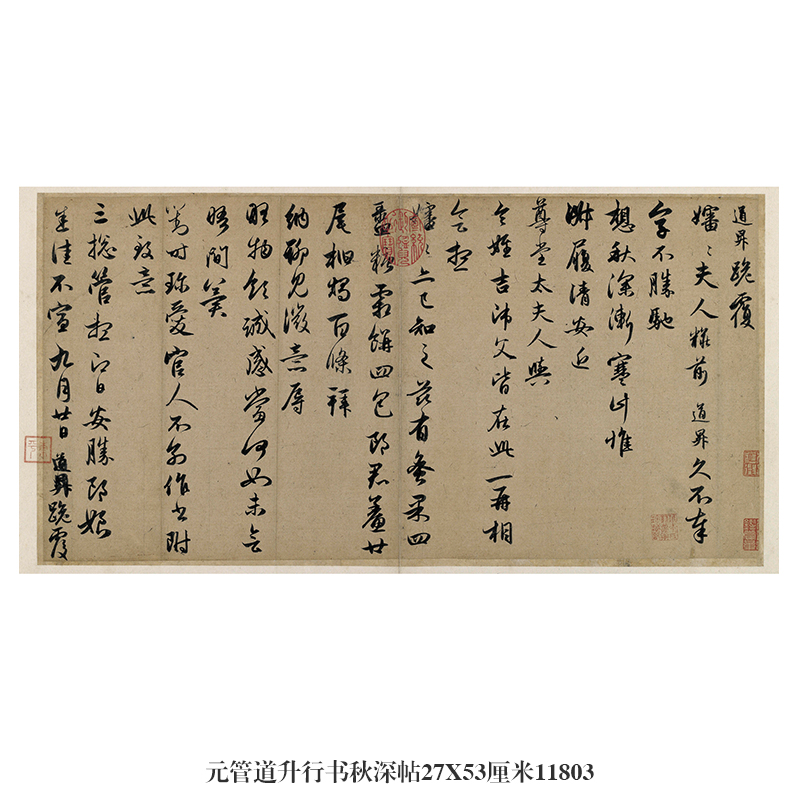 道昇跪覆
嬸〻夫人粧前道昇久不奉
字不勝馳
想秋深漸寒計惟
淑履清安近
尊堂太夫人與
令姪吉師父皆在此一再相
會想
嬸〻亦已知之茲有蜜果四
盝糖霜餅四包郎君鯗廿
尾柏燭百條拜
納聊見微意辱
物領誠感當何如未會
晤間冀
對時珍愛官人不別作書附
此致意
三總管想即日安勝郎娘
悉佳不宣九月廿日道昇跪覆
元管道升行书秋深帖27X53厘米11803